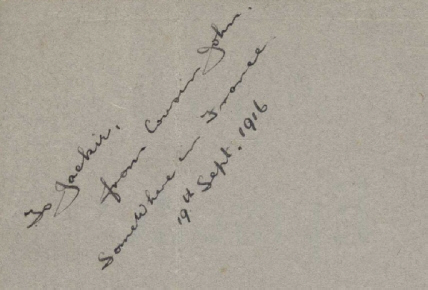 To Jackie,
from Cousin John.
Somewhere in France
19th Sept. 1916